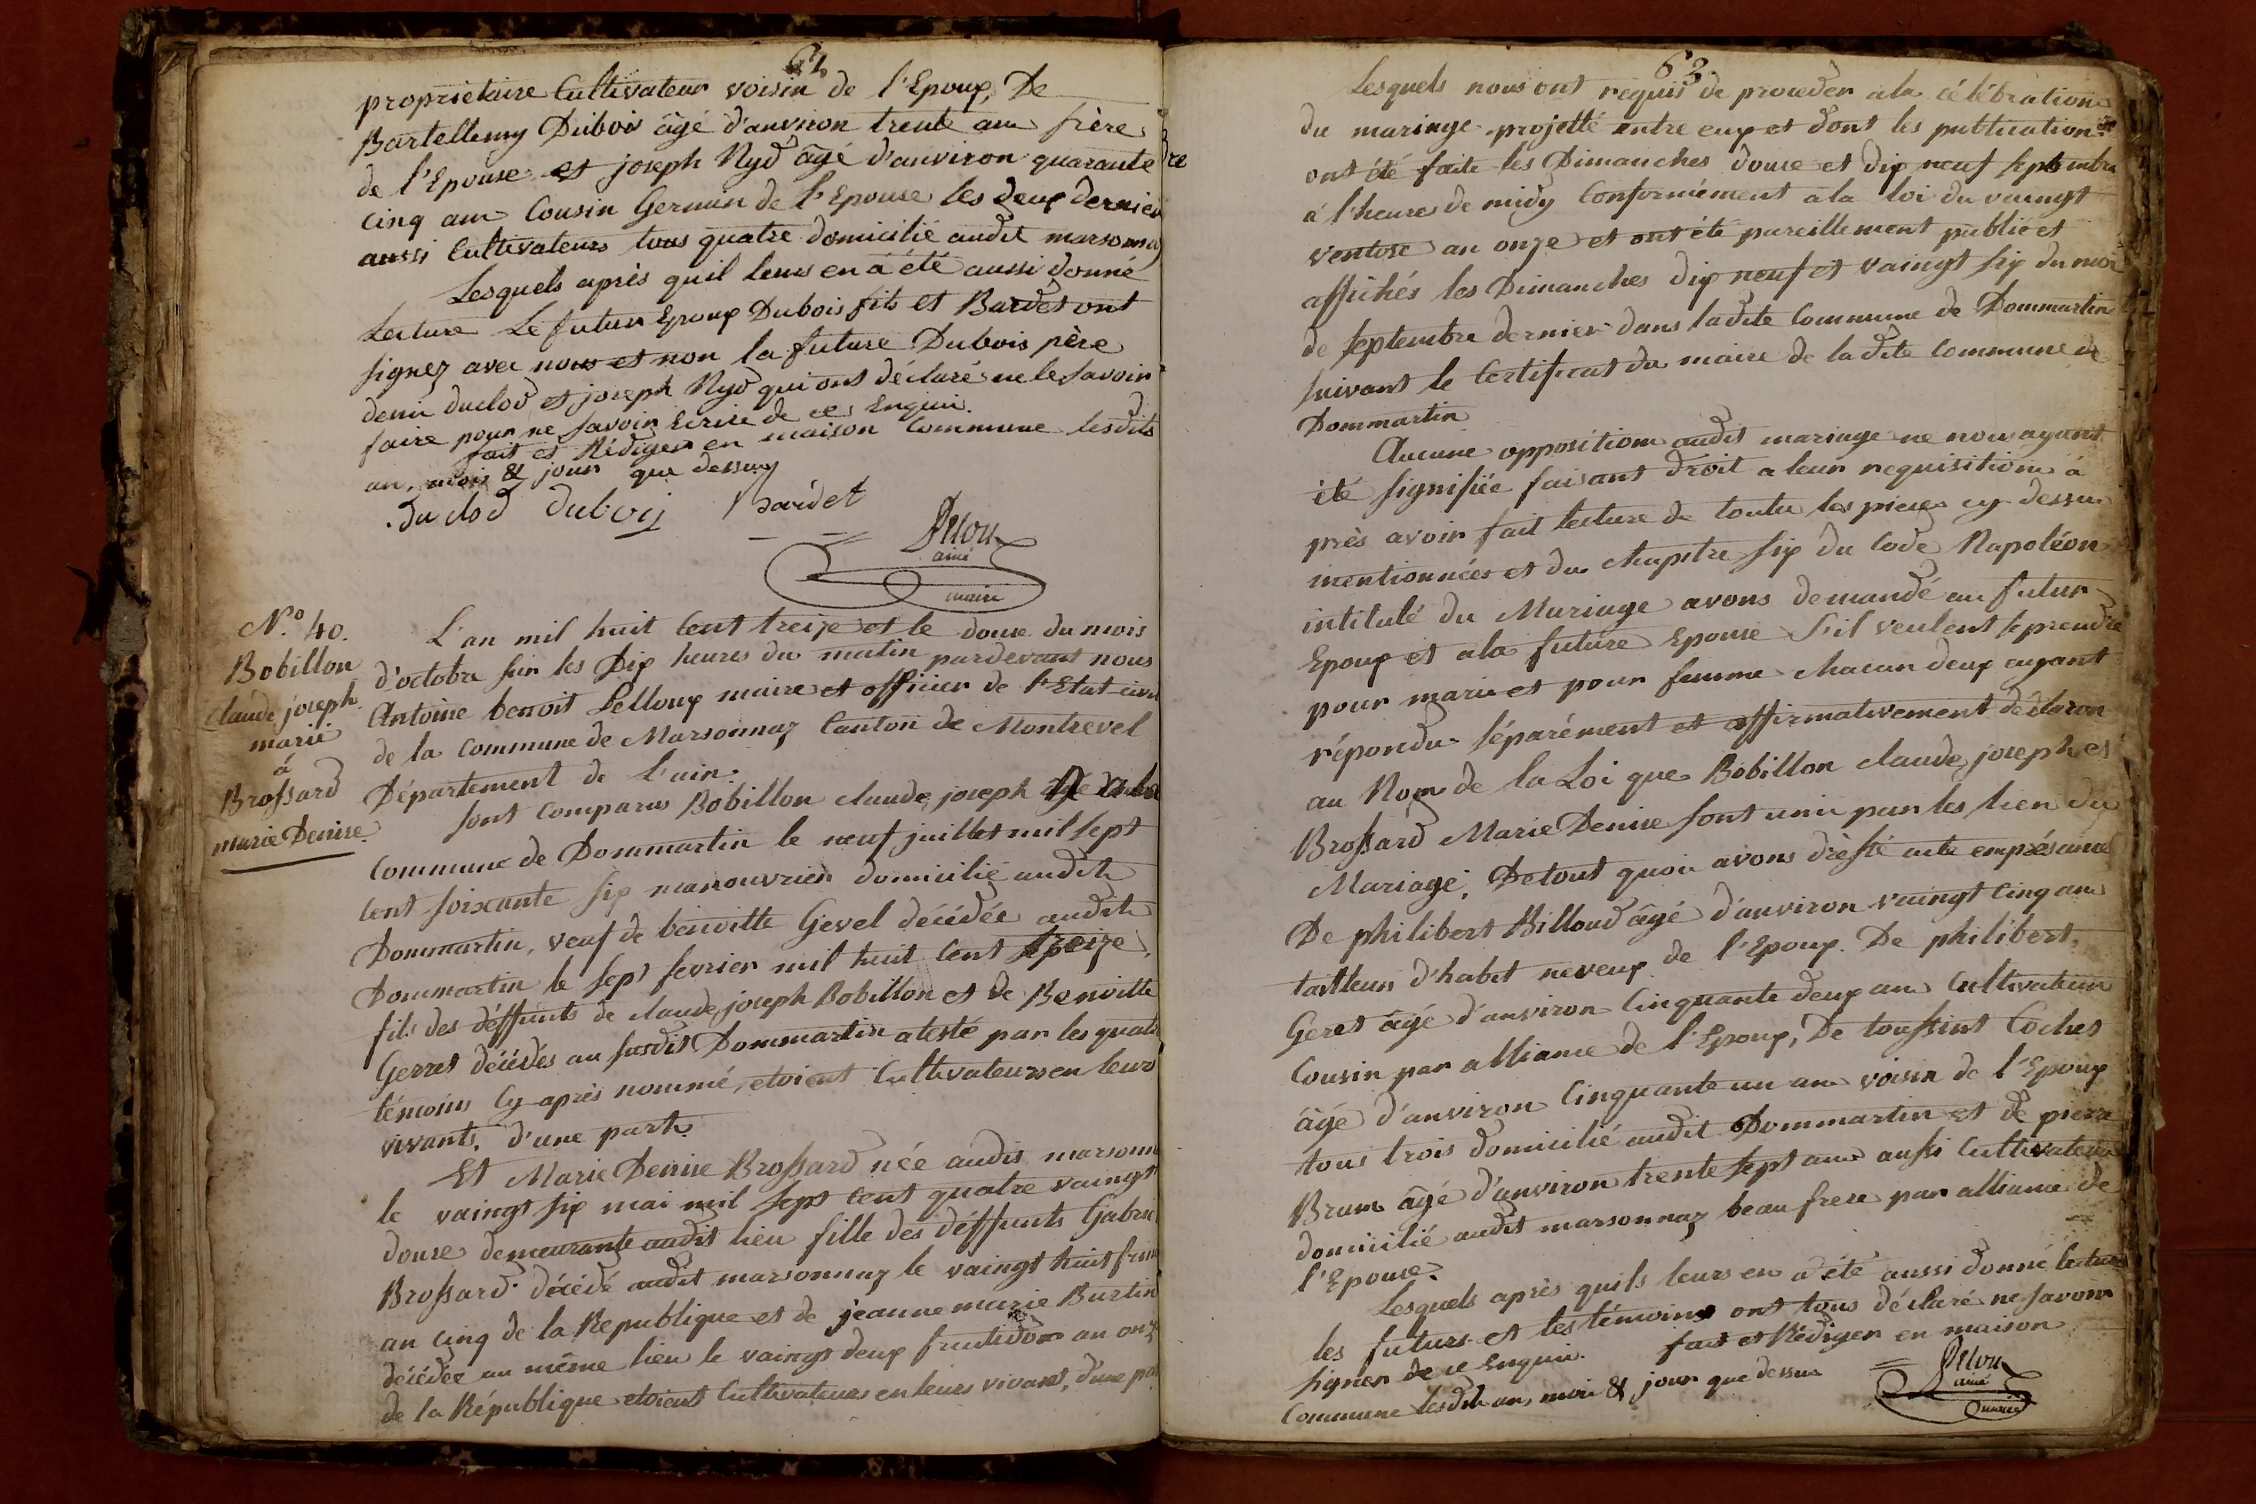 62
propriétaire Cultivateur voisin de l'Epoux, De
Bartellemy Dubois âgé d'anviron trente ans frère
de l'Epouse et joseph Nyd âgé d'anviron quarante
cinq ans Cousin Germain de l'Epouse les deux dernier
aussi Cultivateurs tous quatre domicilié audit marsonnay
Lesquels après quil leurs en à été aussi donné
Lecture Le futur Epoux Dubois fils et Bardet ont
signez avec nous et non la future Dubois père
denis duclod et joseph Nyd qui ont déclaré ne le savoir
faire pour ne savoir Ecrire de ce Enquis.
fait et Rédiger en maison Commune lesdits
an, mois & jour que dessus
duclod duboij Bardet
aîné
maire
N.º 40.
Bobillon
claude joseph
marié
à
Brossard
marie Denise
L'an mil huit Cent treize et le douse du mois
d'octobre sur les Dix heures du matin pardevant nous
Antoine benoit Lelloup maire et officier de l'Etat civil
de la Commune de Marsonnay Canton de Montrevel
Département de L'ain.
sont Comparus Bobillon claude joseph
Commune de Dommartin le neuf juillet mil sept
Cent soixante six manouvrier domicilié audit
Dommartin, veuf de benoitte Gevel décédée audit
Dommartin le sept fevrier mil huit Cent treize,
fils des déffunts de claude joseph Bobillon et de Benoitte
Gerret décédés au susdit Dommartin atesté par les quatre
témoins Cy après nommé, etoient Cultivateurs en leurs
vivants, d'une part.
Et Marie Denise Brossard née audit marsonn
le vaingt six mai mil sept Cent quatre vaingt
douse demeurante audit lieu fille des déffunts Gabriel
Brossard décédé audit marsonnay le vaingt huit
an Cinq de la République et de jeanne marie Burtin
décédée au même lieu le vaingt deux fructidor an onz
de la République etoient Cultivateurs en leurs vivant, d'une par
63
Lesquels nous ont requis de proceder ala célébration
du mariage projetté entre eux et dont les publications
ont été faite les Dimanches douse et dix neuf septembre
à l'heure de midy Conformément ala loi du vaingt
ventose an onze et ont été pareillement publié et
affichés les Dimanches dix neuf et vaingt six du moi
de septembre dernier dans ladite Commune de Dommartin
suivant le Certificat du maire de ladite Commune de
Dommartin
Aucune opposition audit mariage ne nous ayant
été signifiée faisant droit a leur requisition à
près avoir fait lecture de toutes les pieces cy dessus
mentionnées et du chapitre six du Code Napoléon
intitulé du Mariage avons demandé au futur
Epoux et ala future Epouse s'il veulent se prendre
pour marie et pour femme chacun deux ayant
répondu séparément et affirmativement déclaron
au Nom de la Loi que Bobillon claude joseph et
Brossard Marie Denise sont unis par les lien du
Mariage; De tout quoi avons drèssé acte emprésance
De philibert Billoud âgé d'anviron vaingt cinq ans
tailleur d'habit neveux de l'Epoux. De philibert
Geret âgé d'anviron Cinquante deux ans Cultivateur
Cousin par alliance de l'Epoux, De toussint Cochet
âgé d'anviron Cinquante un ans voisin de l'Epoux
tous trois domicilié audit Dommartin et de pierre
Brum âgé d'anviron trente sept ans aussi Cultivateur
domicilié audit marsonnay beau frere par alliance de
l'Epouse.
Lesquels après quils leurs en a été aussi donné lecture
les futurs et les témoins ont tous déclaré ne savoir
signer de ce Enquis. fait et Rédiger en maison
Commune lesdit an, mois & jour que dessus
aîné
maire